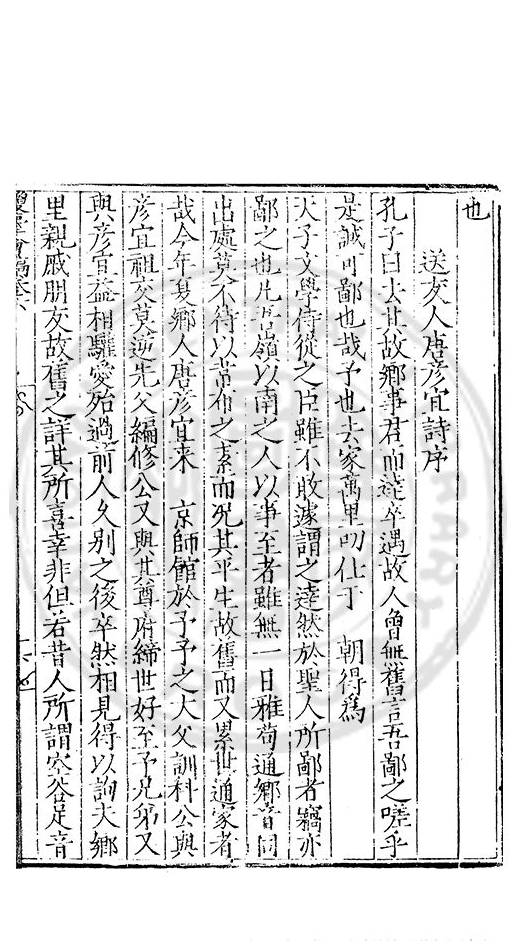 也
送友人唐彦宜詩序
孔子曰去其故鄉事君而達卒遇故人曾無舊言吾鄙之嗟乎
是誠可鄙也哉予也去家萬里叨仕于 朝得爲
天子文學侍從之臣雖不敢遽謂之達然於聖人所鄙者竊亦
鄙之也凡吾嶺以南之人以事至者雖無一日雅苟通鄉音同
出處莫不待以常布之素而況其平生故舊而又累世通家者
哉今年夏鄉人唐彦宜來 京師館於予予之大父訓科公與
彦宜祖交莫逆先父編修公又與其尊府締世好至予兄弟又
與彦宜益相驩愛殆過前人久別之後卒然相見得以詢夫鄉
里親戚朋友故舊之詳其所喜幸非但若昔人所謂空谷足音
稿卷六